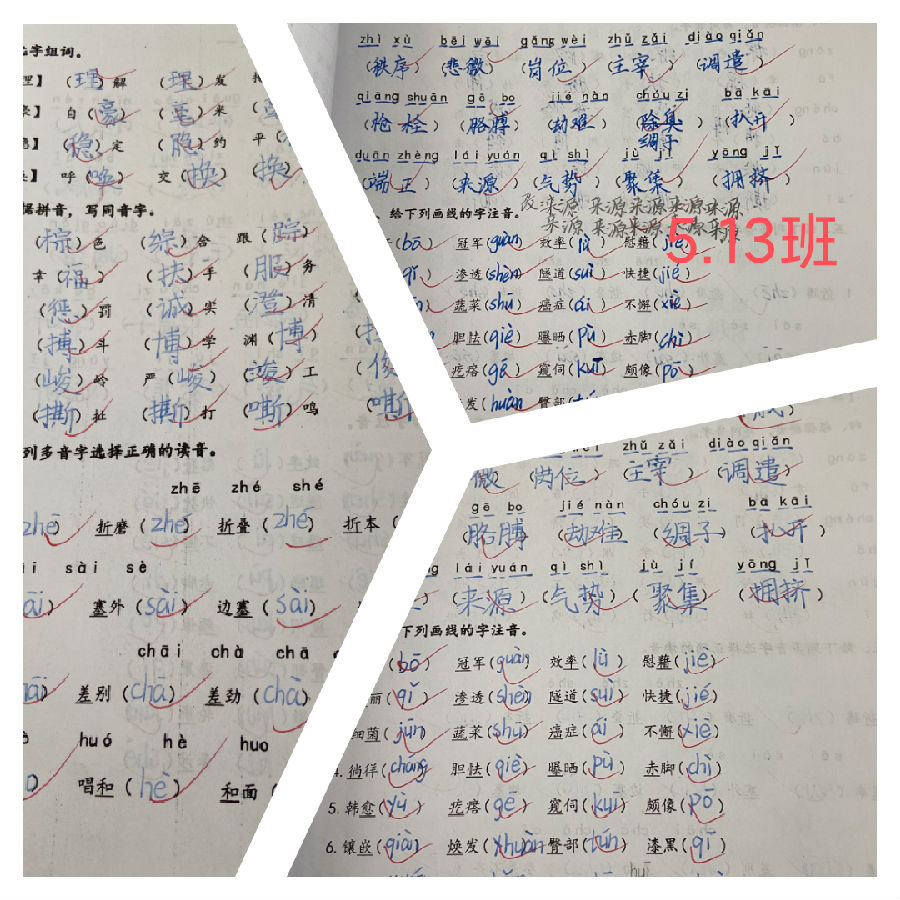 字组词。
(理)解 (理)发
自(豪) (毫)米
(稳)定 (隐)约 平
呼(唤) 交(换) (换)
据拼音，写同音字。
(棕)色 (综)合 跟(踪)
幸(福) (扶)手 (服)务
(惩)罚 (诚)实 (澄)清
(搏)斗 (博)学 渊(博)
(峻)岭 严(峻) (浚)工
(撕)扯 (撕)打 (嘶)鸣
列多音字选择正确的读音。
zhē zhé shé
zhē) 折磨(zhé) 折叠(zhé) 折本(
sài sè
āi) 塞外(sài) 边塞(sài)
chāi chà chā
差别(chā) 差劲(chà)
huó hè huo
唱和(hè) 和面(
zhì xù bēi wēi gǎng wèi zhǔ zǎi diào qiǎn
(秩序) (悲微) (岗位) (主宰) (调遣)
qiāng shuān gē bo jié nàn chóu zi bā kāi
(枪栓) (胳膊) (劫难) (除集) (扒开)
绸子
duān zhèng lái yuán qì shì jù jí yōng jǐ
(端正) (来源) (气势) (聚集) (拥挤)
改来源 来源来源来源来源
、给下列画线的字注音。
来源 来源来源来源来源
5.13班
(bō) 冠军(guàn) 效率(lǜ) 慰藉(jiè)
(qǐ) 渗透(shèn) 隧道(suì) 快捷(jié)
蔬菜(shū) 癌症(ái) 不懈(xiè)
胆怯(qiè) 曝晒(pù) 赤脚(chì)
疙瘩(gē) 窥伺(kuī) 颇像(pō)
发(huàn) 臀部(
zhǔ zǎi diào qiǎn
微) (岗位) (主宰) (调遣)
gē bo jié nàn chóu zi bā kāi
(胳膊) (劫难) (绸子) (扒开)
lái yuán qì shì jù jí yōng jǐ
(来源) (气势) (聚集) (拥挤)
下列画线的字注音。
(bō) 冠军(guàn) 效率(lǜ) 慰藉(jiè)
丽(qǐ) 渗透(shèn) 隧道(suì) 快捷(jié)
细菌(jūn) 蔬菜(shū) 癌症(ái) 不懈(xiè)
4.徜徉(cháng) 胆怯(qiè) 曝晒(pù) 赤脚(chì)
5.韩愈(yù) 疙瘩(gē) 窥伺(kuī) 颇像(pō)
6.镶嵌(qiàn) 焕发(huàn) 臀部(tún) 漆黑(qī)
huī